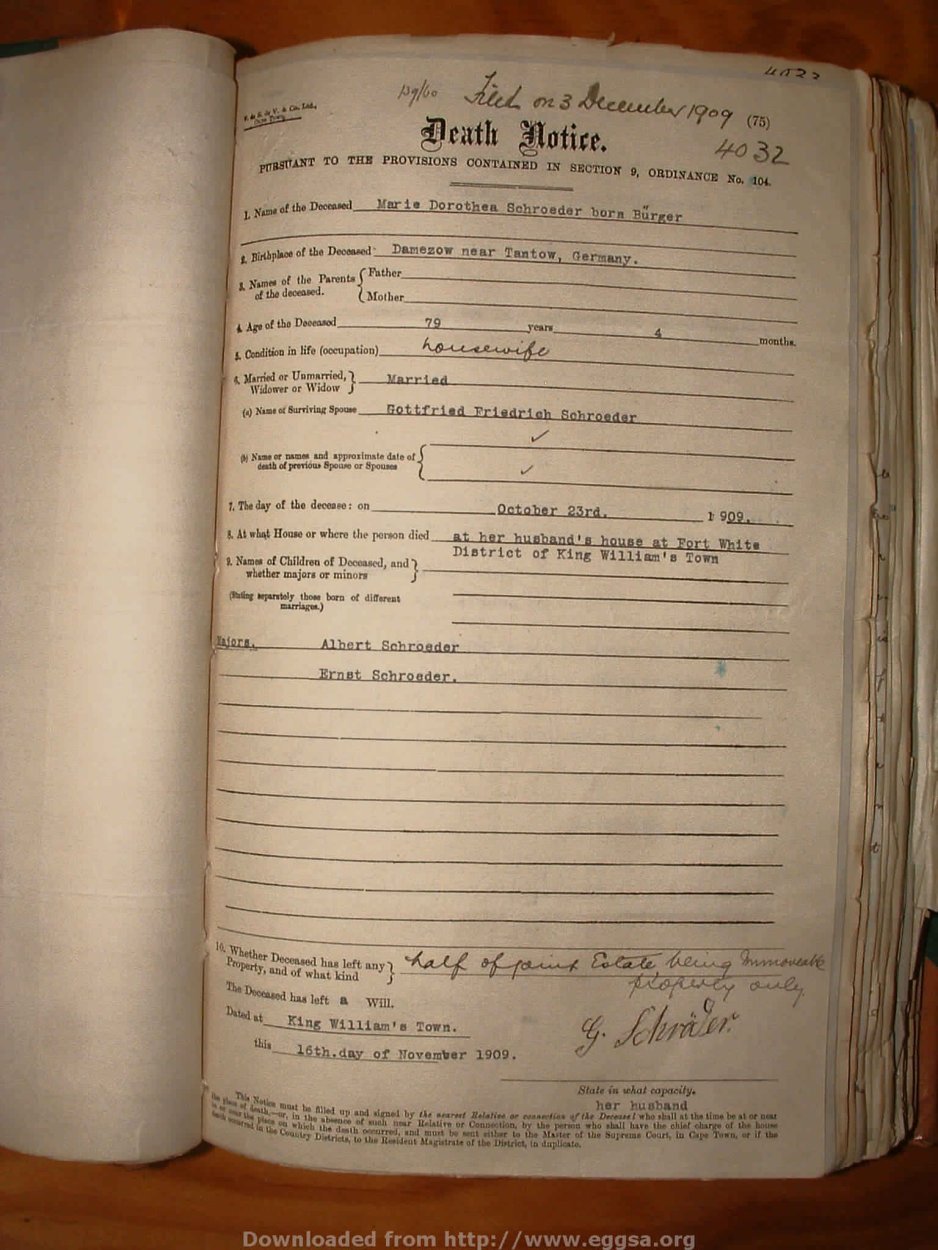 139/60 Filed on 3 December 1909 (75)
Cape Town.
Death Notice.
4032
PURSUANT TO THE PROVISIONS CONTAINED IN SECTION 9, ORDINANCE No. 104.
1. Name of the Deceased Marie Dorothea Schroeder born Bürger
2. Birthplace of the Deceased Damezow near Tantow, Germany.
3. Names of the Parents of the deceased. { Father
Mother
4. Age of the Deceased 79 years 4 months.
5. Condition in life (occupation) housewife
6. Married or Unmarried, } Married
Widower or Widow
(a) Name of Surviving Spouse Gottfried Friedrich Schroeder
✓
(b) Name or names and approximate date of {
death of previous Spouse or Spouses ✓
7. The day of the decease: on October 23rd. 1909.
8. At what House or where the person died at her husband's house at Fort White
District of King William's Town
9. Names of Children of Deceased, and }
whether majors or minors
(Stating separately those born of different
marriages.)
Majors. Albert Schroeder
Ernst Schroeder.
10. Whether Deceased has left any } half of joint Estate being Immoveable
Property, and of what kind property only
The Deceased has left a Will.
Dated at King William's Town. G. Schräder.
this 16th.day of November 1909.
State in what capacity.
her husband
This Notice must be filled up and signed by the nearest Relative or connection of the Deceased who shall at the time be at or near
the place of death,—or, in the absence of such near Relative or Connection, by the person who shall have the chief charge of the house
in or near the place on which the death occurred, and must be sent either to the Master of the Supreme Court, in Cape Town, or if the
death occurred in the Country Districts, to the Resident Magistrate of the District, in duplicate.
Downloaded from http://www.eggsa.org